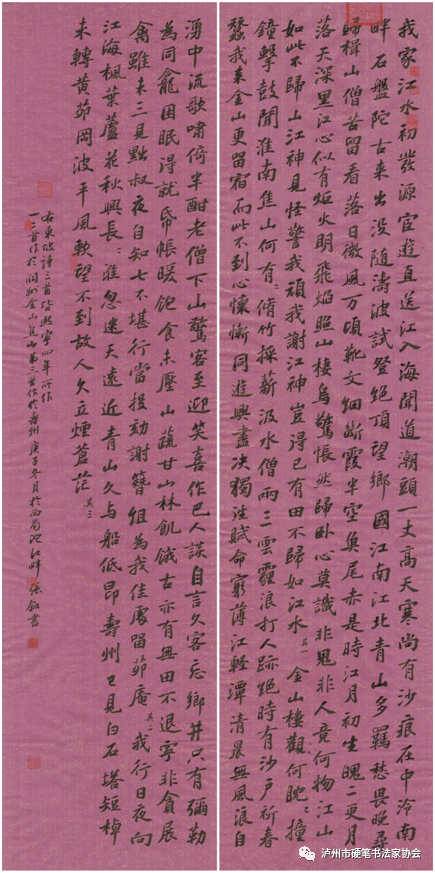 我家江水初發源宦遊直送江入海聞道潮頭一丈高天寒尚有沙痕在中泠南
畔石盤陀古來出没隨濤波試登絕頂望鄉國江南江北青山多羈愁畏晚尋
歸楫山僧苦留看落日微風万頃靴文細斷霞半空魚尾赤是時江月初生魄二更月
落天深黑江心似有炬火明飛焰照山棲烏驚悵然歸卧心莫識非鬼非人竟何物江山
如此不歸山江神見怪警我頑我謝江神豈得已有田不歸如江水 其一 金山樓觀何眈撞
鐘擊鼓聞淮南焦山何有々脩竹採薪汲水僧兩三雲霾浪打人跡絕時有沙户祈春
蠶我來金山更留宿而此不到心懷慚同遊興盡決獨往賦命窮薄江輕潭清晨無風浪自
湧中流歌嘯倚半酣老僧下山驚客至迎笑喜作巴人談自言久客忘鄉井只有彌勒
為同龕困眠得就帋帳暖飽食未厭山蔬甘山林飢餓古亦有無田不退寧非貪展
禽雖未三見黜叔夜自知七不堪行當投劾謝簪組為我佳處留茆庵 其二 我行日夜向
江海楓葉蘆花秋興長々淮忽迷天遠近青山久與船低昂壽州已見白石塔短棹
未轉黃茆岡波平風軟望不到故人久立煙蒼茫 其三
右東坡詩三首皆熙寧四年所作
一二首作於潤州金山焦山第三首作於壽州庚子冬月於西蜀沱江畔張書
泸州市硬笔书法家协会